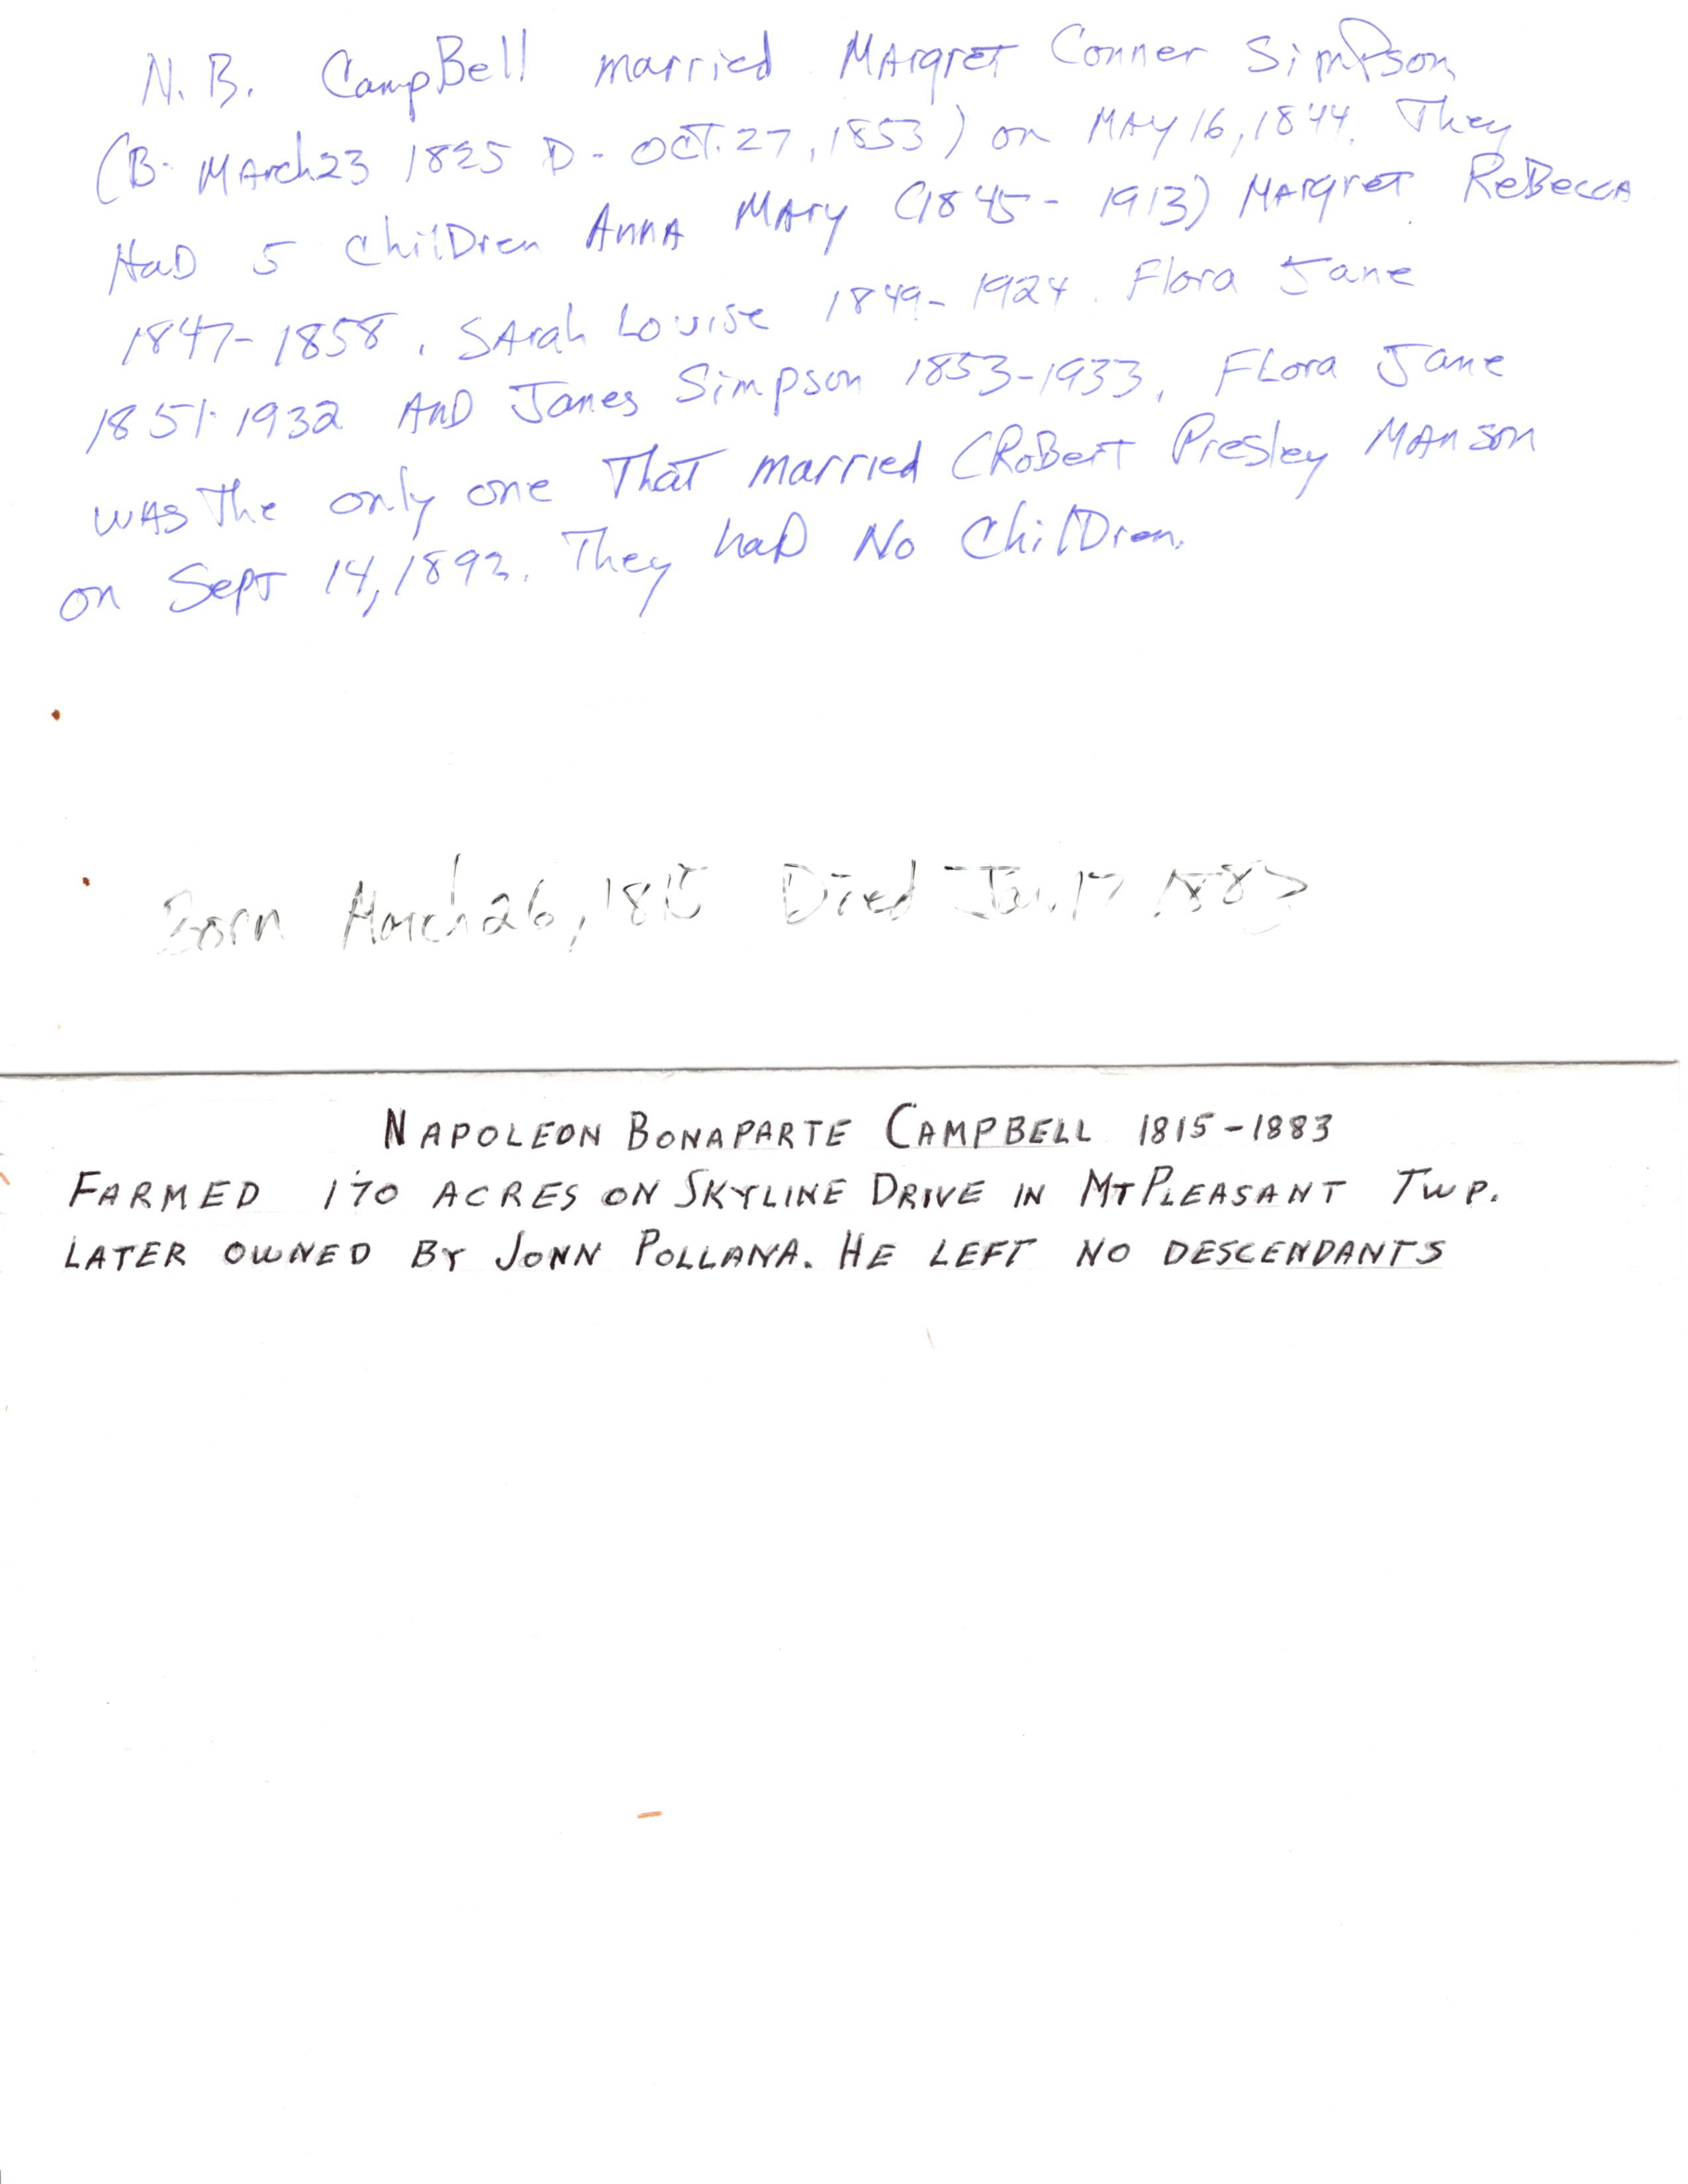 N.B. CampBell married MArgreT Conner SimPson
(B- MArch 23 1825 D- OCT. 27, 1853) on MAY 16, 1844. They
HaD 5 ChilDren AnnA MAry (1845 - 1913) MArgreT ReBeccA
1847-1858, SArah Louise 1849-1924. Flora Jane
1851-1932 AnD James Simpson 1853-1933, FLora Jane
wAs The only one ThaT married (RoBerT Presley MAnson
on SepT 14, 1892. They haD No ChilDren.
Born March 26, 1815 Died Jan. 17 1883
NAPOLEON BONAPARTE CAMPBELL 1815-1883
FARMED 170 ACRES ON SKYLINE DRIVE IN MT PLEASANT TWP.
LATER OWNED BY JONN POLLANA. HE LEFT NO DESCENDANTS